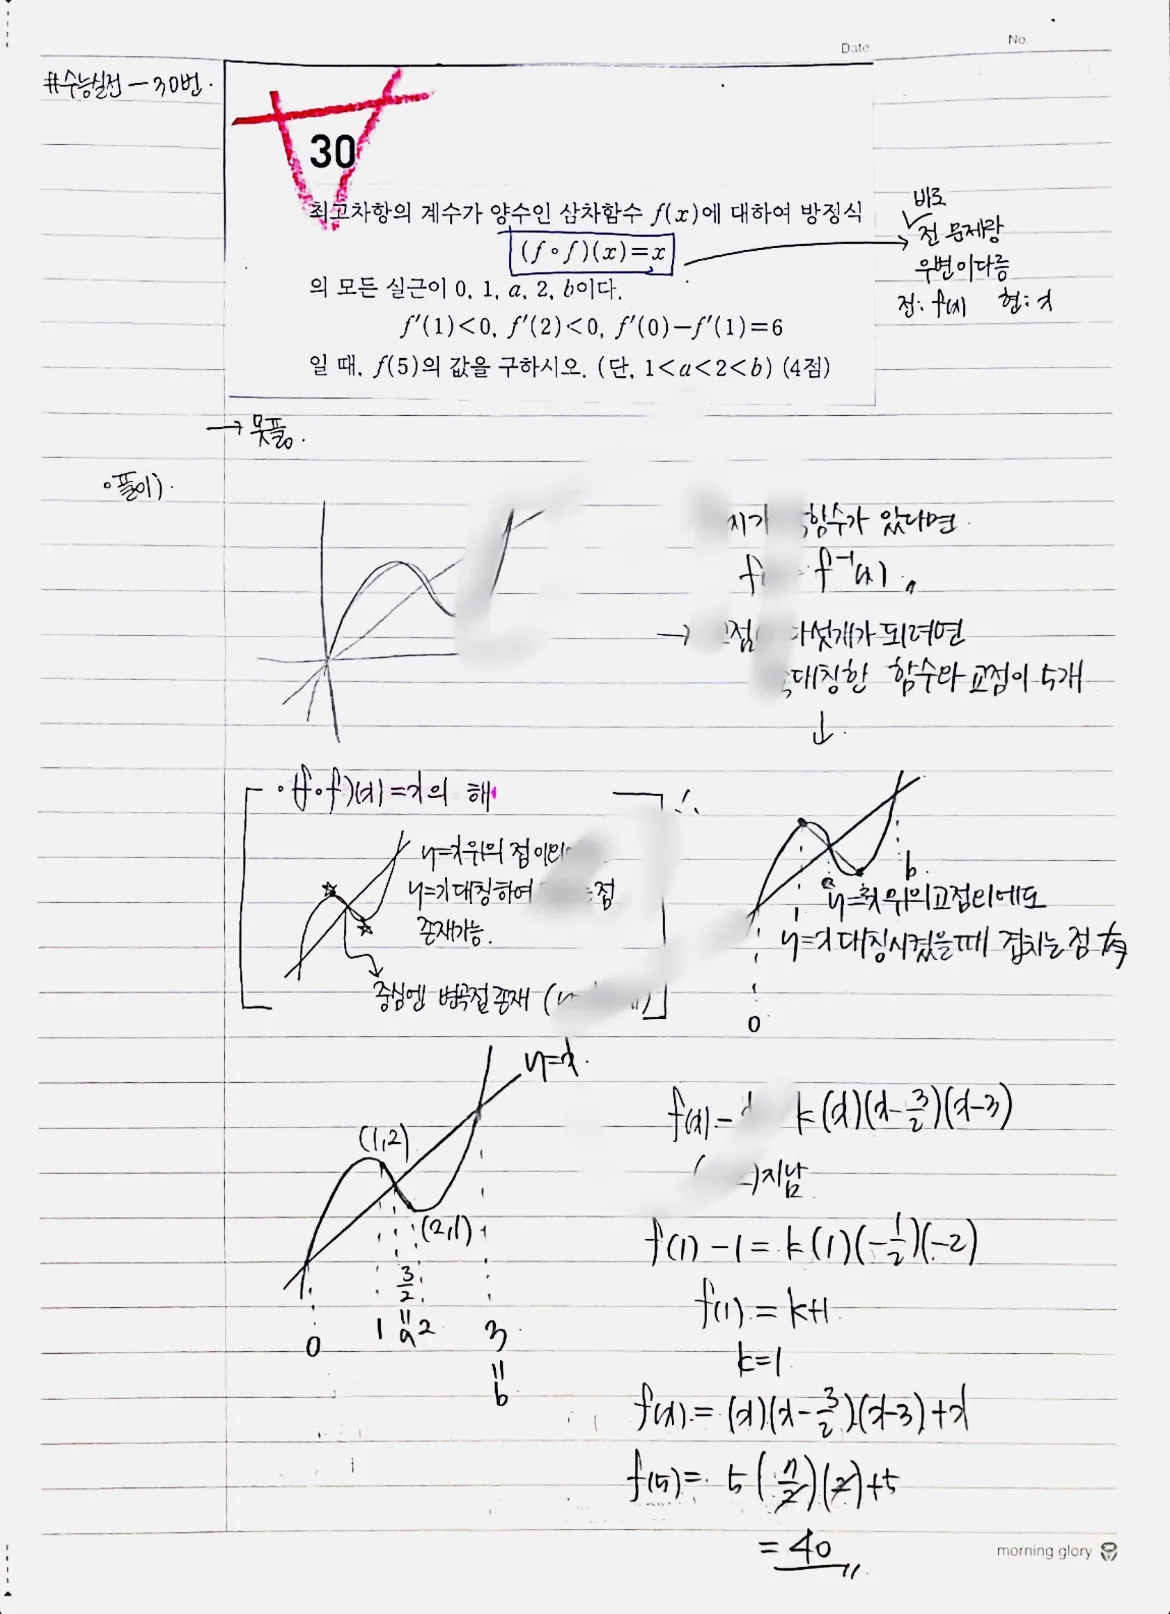 Date
No
#수능실전 - 30번.
30
최고차항의 계수가 양수인 삼차함수 f(x)에 대하여 방정식
(f∘f)(x)=x
의 모든 실근이 0, 1, a, 2, b이다.
f'(1)<0, f'(2)<0, f'(0)-f'(1)=6
일 때, f(5)의 값을 구하시오. (단, 1<a<2<b) (4점)
바로
전 문제랑
우변이다름
전: f(x) 현: x
→ 못풂.
∘풀이).
함수가 있다면.
f⁻¹(x)
→ 다섯개가 되려면
대칭한 함수와 교점이 5개
↓
∘(f∘f)(x)=x의 해
y=x위의 점이외
y=x대칭하여 점
존재가능.
중심엔 변곡점존재
∴
a
b
y=x위의교점외에도
y=x대칭시켰을때 겹치는점 有
0
y=x.
(1,2)
(2,1)
3/2
0 1 a 2 3
b
f(x)- k(x)(x-3/2)(x-3)
지남
f(1)-1=k(1)(-1/2)(-2)
f(1)=k+1
k=1
f(x)=(x)(x-3/2)(x-3)+x
f(5)= 5(7/2)(2)+5
=40
morning glory